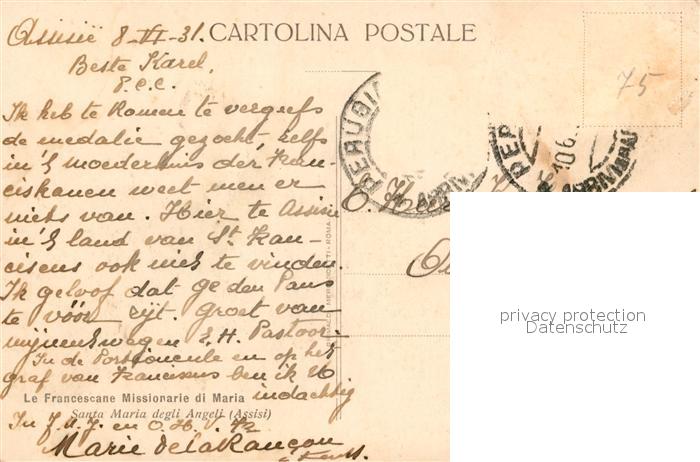 Assisië 8-VI-31. CARTOLINA POSTALE
Beste Karel,
P.C.C.
75
Ik heb te Romen te vergeefs
de medalie gezocht, zelfs
in 't moederhuis der Fran-
ciskanen weet men er
niets van. Hier te Assisi
in 't land van St. Fran-
ciscus ook niets te vinden.
Ik geloof dat ge den Paus
te vóór zijt. Groet van
mijnentwegen Z.H. Pastoor.
In de Portioncule en op het
graf van Franciscus ben ik U
indachtig
Le Francescane Missionarie di Maria
Santa Maria degli Angeli (Assisi)
In J.M.J. en O.H.V.
Marie de la Rançon
PERUGI
ARRIV
PER
10 6
ARRIVI
ROMA
privacy protection
Datenschutz